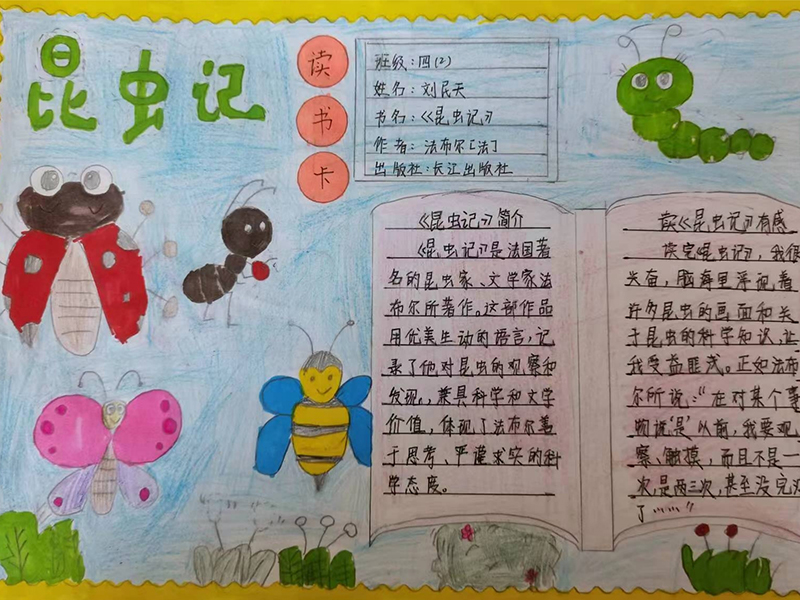 昆虫记
读书卡
班级:四(2)
姓名:刘民天
书名:《昆虫记》
作者:法布尔[法]
出版社:长江出版社
《昆虫记》简介
《昆虫记》是法国著
名的昆虫家、文学家法
布尔所著作。这部作品
用优美生动的语言,记
录了他对昆虫的观察和
发现。兼具科学和文学
价值,体现了法布尔善
于思考、严谨求实的科
学态度。
读《昆虫记》有感
读完《昆虫记》,我很
兴奋,脑海里浮现着
许多昆虫的画面和关
于昆虫的科学知识,让
我受益匪浅。正如法布
尔所说:“在对某个事
物说‘是’以前,我要观
察、触摸,而且不是一
次,是两三次,甚至没完没
了……”